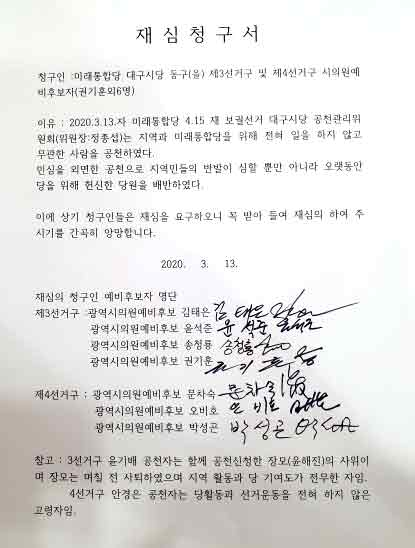 재심청구서
청구인 :미래통합당 대구시당 동구(을) 제3선거구 및 제4선거구 시의원예
비후보자(권기훈외6명)
이유 : 2020.3.13.자 미래통합당 4.15 재 보궐선거 대구시당 공천관리위
원회(위원장:정종섭)는 지역과 미래통합당을 위해 전혀 일을 하지 않고
무관한 사람을 공천하였다.
민심을 외면한 공천으로 지역민들의 반발이 심할 뿐만 아니라 오랫동안
당을 위해 헌신한 당원을 배반하였다.
이에 상기 청구인들은 재심을 요구하오니 꼭 받아 들여 재심의 하여 주
시기를 간곡히 앙망합니다.
2020. 3. 13.
재심의 청구인 예비후보자 명단
제3선거구 :광역시의원예비후보 김태은 김태은
광역시의원예비후보 윤석준 윤석준
광역시의원예비후보 송정룡 송정룡
광역시의원예비후보 권기훈 권기훈
제4선거구 : 광역시의원예비후보 문차숙 문차숙
광역시의원예비후보 오비호 오비호
광역시의원예비후보 박성곤 박성곤
참고 : 3선거구 윤기배 공천자는 함께 공천신청한 장모(윤해진)의 사위이
며 장모는 며칠 전 사퇴하였으며 지역 활동과 당 기여도가 전무한 자임.
4선거구 안경은 공천자는 당활동과 선거운동을 전혀 하지 않은
고령자임.